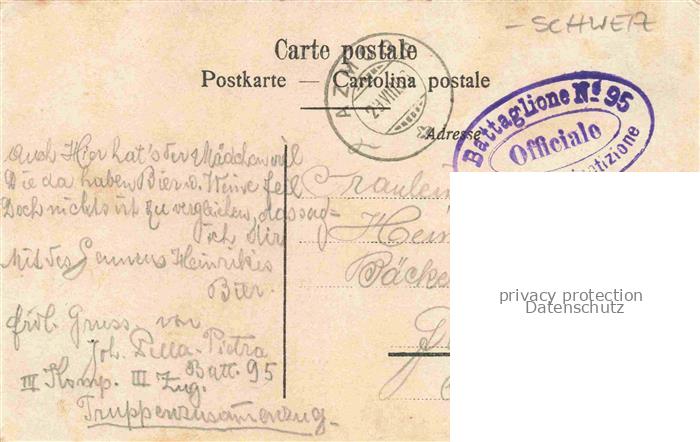 – SCHWEIZ
Carte postale
Postkarte — Cartolina postale
AZMOOS
29.VIII.
Adresse
Battaglione Nº 95
Officiale
Auch Hier hat's der Mädchen viel
Die da haben Bier u. Weine feil
Doch nichts ist zu vergleichen, das sag=
Ich Dir
Mit des Heinrikes
Bier.
frdl. Gruss von
Joh. Pietra
Batt. 95
III Komp. III Zug.
Truppenzusamenzug.
Fraulein
privacy protection
Datenschutz